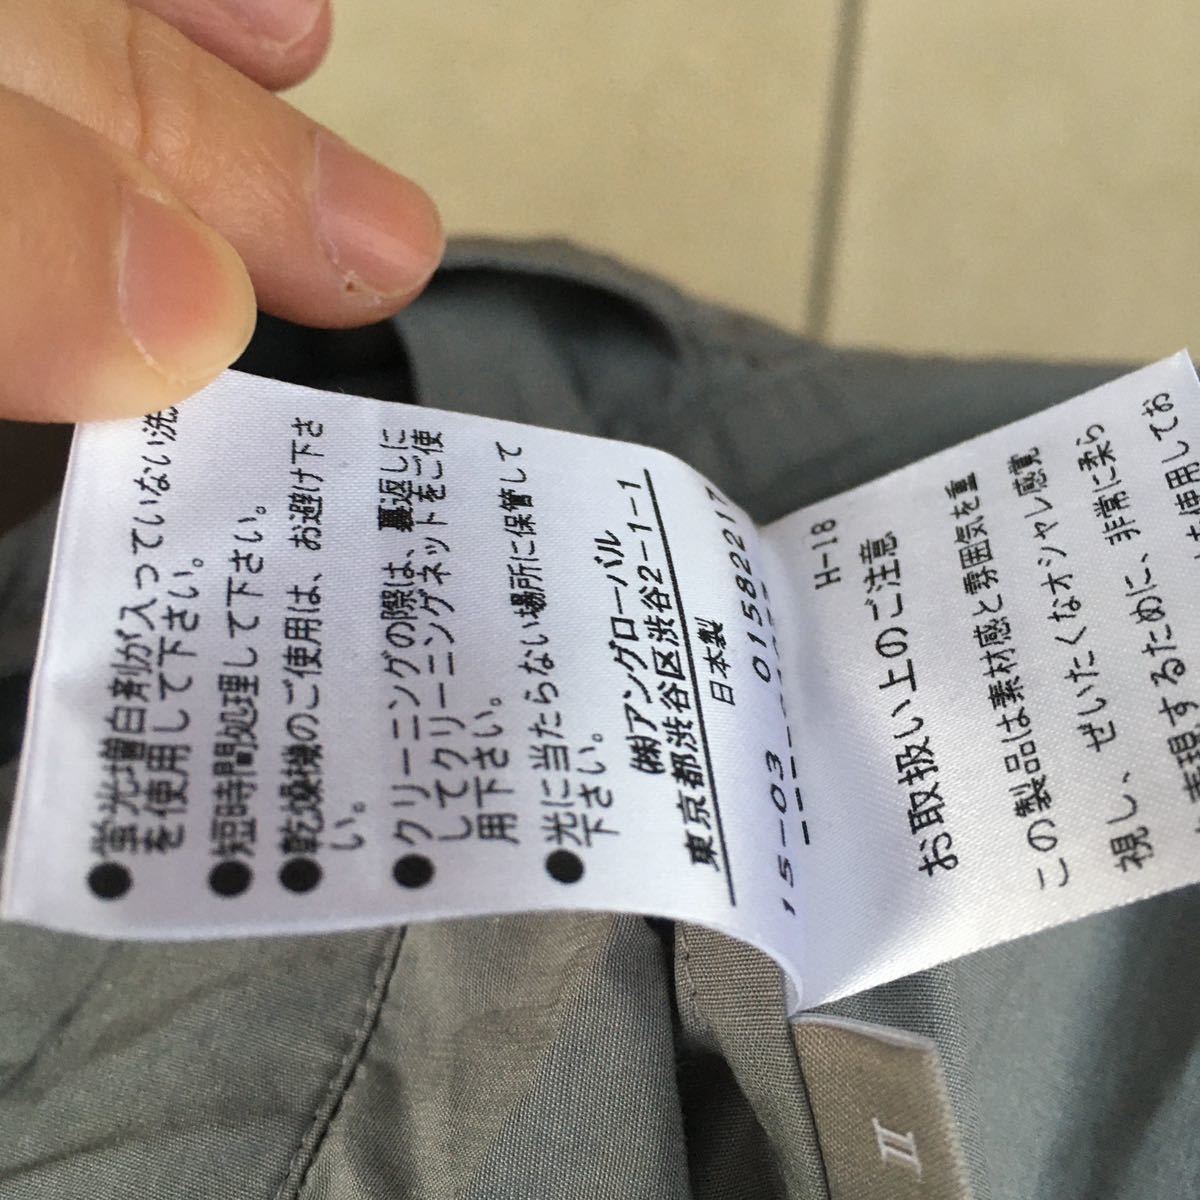 ●蛍光増白剤が入っていない洗
を使用して下さい。
●短時間処理して下さい。
●乾燥機のご使用は、お避け下さ
い。
●クリーニングの際は、裏返しに
してクリーニングネットをご使
用下さい。
●光に当たらない場所に保管して
下さい。
㈱アングローバル
東京都渋谷区渋谷2-1-1
日本製
15-03 01582217
H-18
お取扱い上のご注意
この製品は素材感と雰囲気を重
視し、ぜいたくなオシャレ感覚
表現するために、非常に柔ら
を使用してお
II